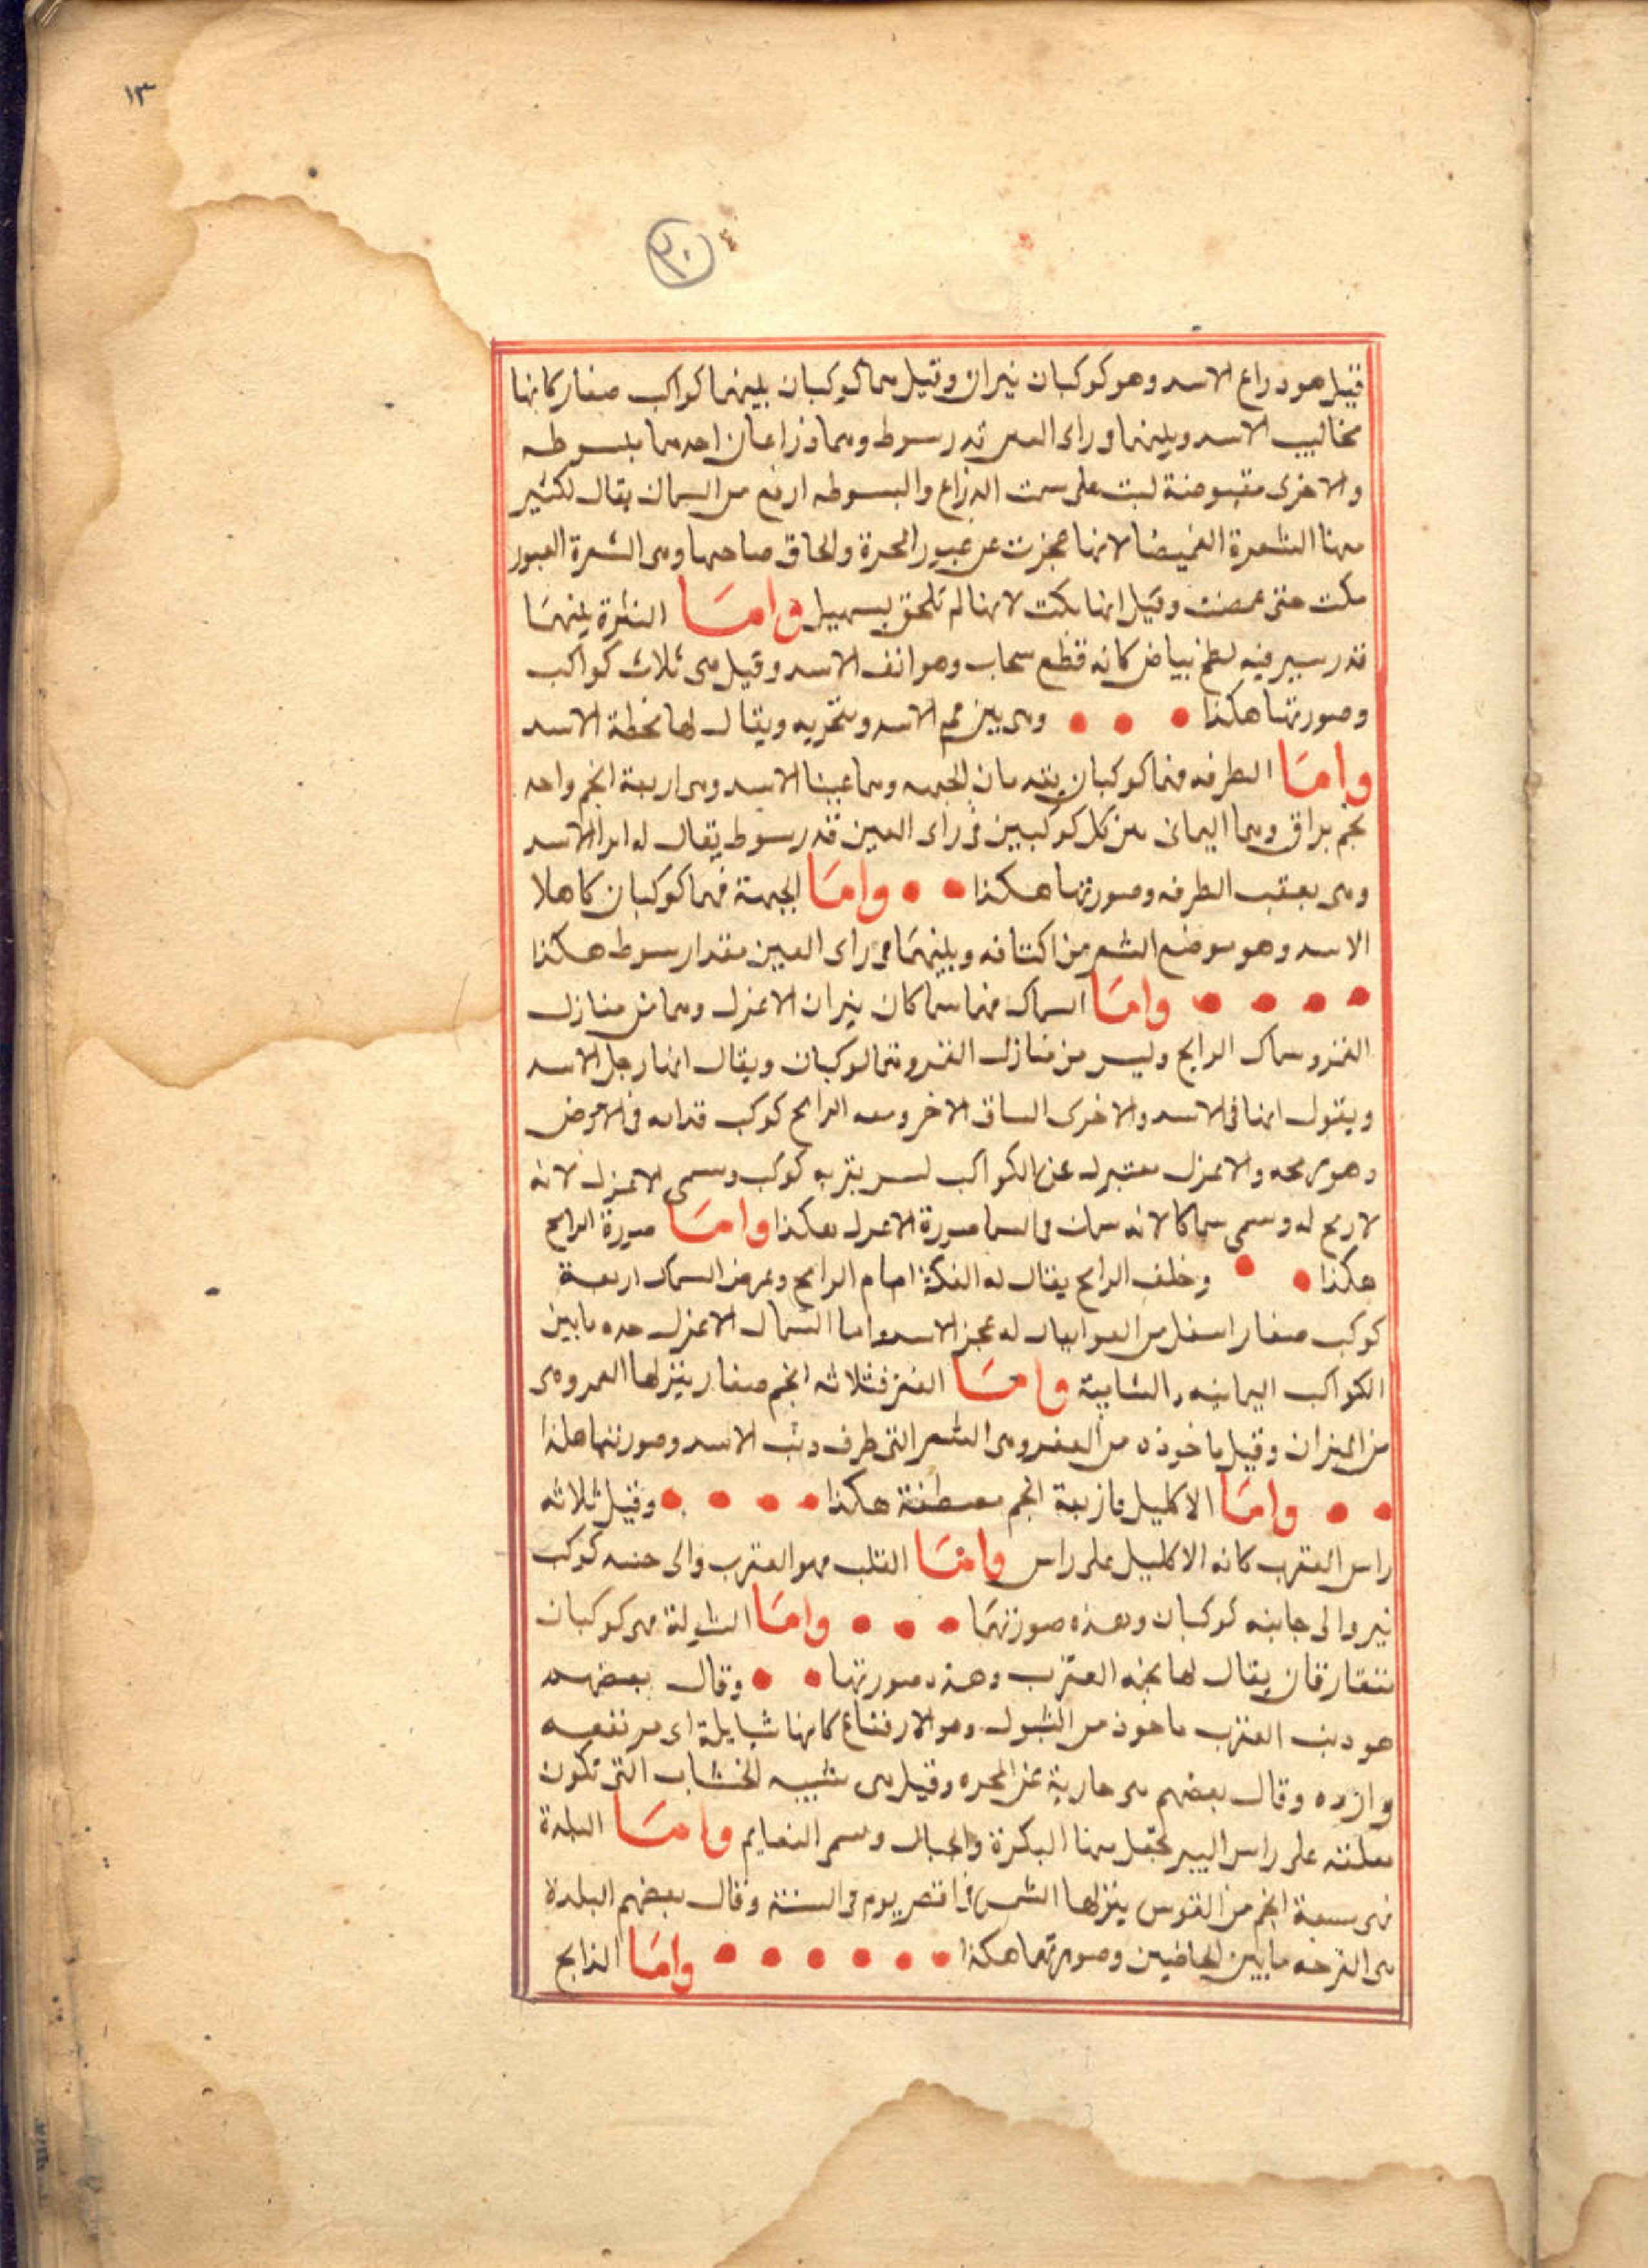 ١٣
٣٠
فقيل هو دراع الاسد وهو كوكبان نيران وقيل هما كوكبان بينهما كواكب صغار كانها
مخاليب الاسد وبينهما وراى العين قدر سوط وهما ذراعان احدهما مبسوطه
والاخرى مقبوضة ليست على سمت الدراع والبسوطه ارفع من السمان يقال لكثير
منها الشعرة الغميضا لانها عجزت عن عبور المجرة ولحاق صاحبها وهى الشعرة العبور
مكت حتى غمصت وقيل انها بكت لانها لم تلحق بسهيل واما النثرة بينهما
قدر سير فيه لطخ بياض كانه قطع سحاب وهو انف الاسد وقيل هى ثلاث كواكب
وصورتها هكذا وهى بين فم الاسد ومنخريه ويقال لها مخطة الاسد
واما الطرفه فهما كوكبان يقدمان الجبهه وهما عينا الاسد وهى اربعة انجم واحد
نجم براق وهما اليمانى من كل كوكبين فى راى العين قدر سوط يقال له الاسد
وهى بعقب الطرفه وصورتها هكذا واما الجبهة فهما كوكبان كاهلا
الاسد وهو موضع الشعر من اكتافه وبينهما فى راى العين مقدار سوط هكذا
واما السماك فهما سماكان نيران الاعزل وهما من منازل
القمر وسماك الرامح وليس من منازل القمر وهما كوكبان ويقال انهما رجل الاسد
ويقول انها فى الاسد والاخرى الساق الاخر ومعه الرامح كوكب قدامه فى الارض
وهو رمحه والاعزل معتزل عن الكواكب ليس بقربه كوكب وسمى الاعزل لانه
لا رمح له وسمى سماكا لانه سمك فى السما صورة الاعزل هكذا واما صورة الرامح
هكذا وخلف الرامح يقال له الفكة امام الرامح وعرض السماك اربعة
كوكب صغار اسفل من العوا يقال له عجز الاسد واما السماك الاعزل حده مابين
الكواكب اليمانيه والشامية واما الغفر فثلاثه انجم صغار ينزلها القمر وهى
من الميزان وقيل ماخوذه من الغفر وهى الشعر التى طرف دنب الاسد وصورتها هكذا
واما الاكليل فاربعة انجم مصطفة هكذا وقيل ثلاثه
راس العقرب كانه الاكليل على راس واما القلب فهو العقرب والى جنبه كوكب
نير والى جانبه كوكبان وهذه صورتهما واما الشولة فهى كوكبان
متقارقان يقال لها العقرب وهذه صورتها وقال بعضهم
هو دنب العقرب ماخوذ من الشول وهو الارتفاع كانها شايلة اى مرتفعه
وارده وقال بعضهم هى خارية عن المجره وقيل هى شبيه الخشاب التى تكون
معلقه على راس البير تجعل منها البكرة والحبال وسمى النعايم واما البلدة
فهى سبعة انجم من القوس ينزلها الشمس فى اقصر يوم فى السنة وقال بعضهم البلدة
هى الفرجه مابين الحاجبين وصورتها هكذا واما الذابح